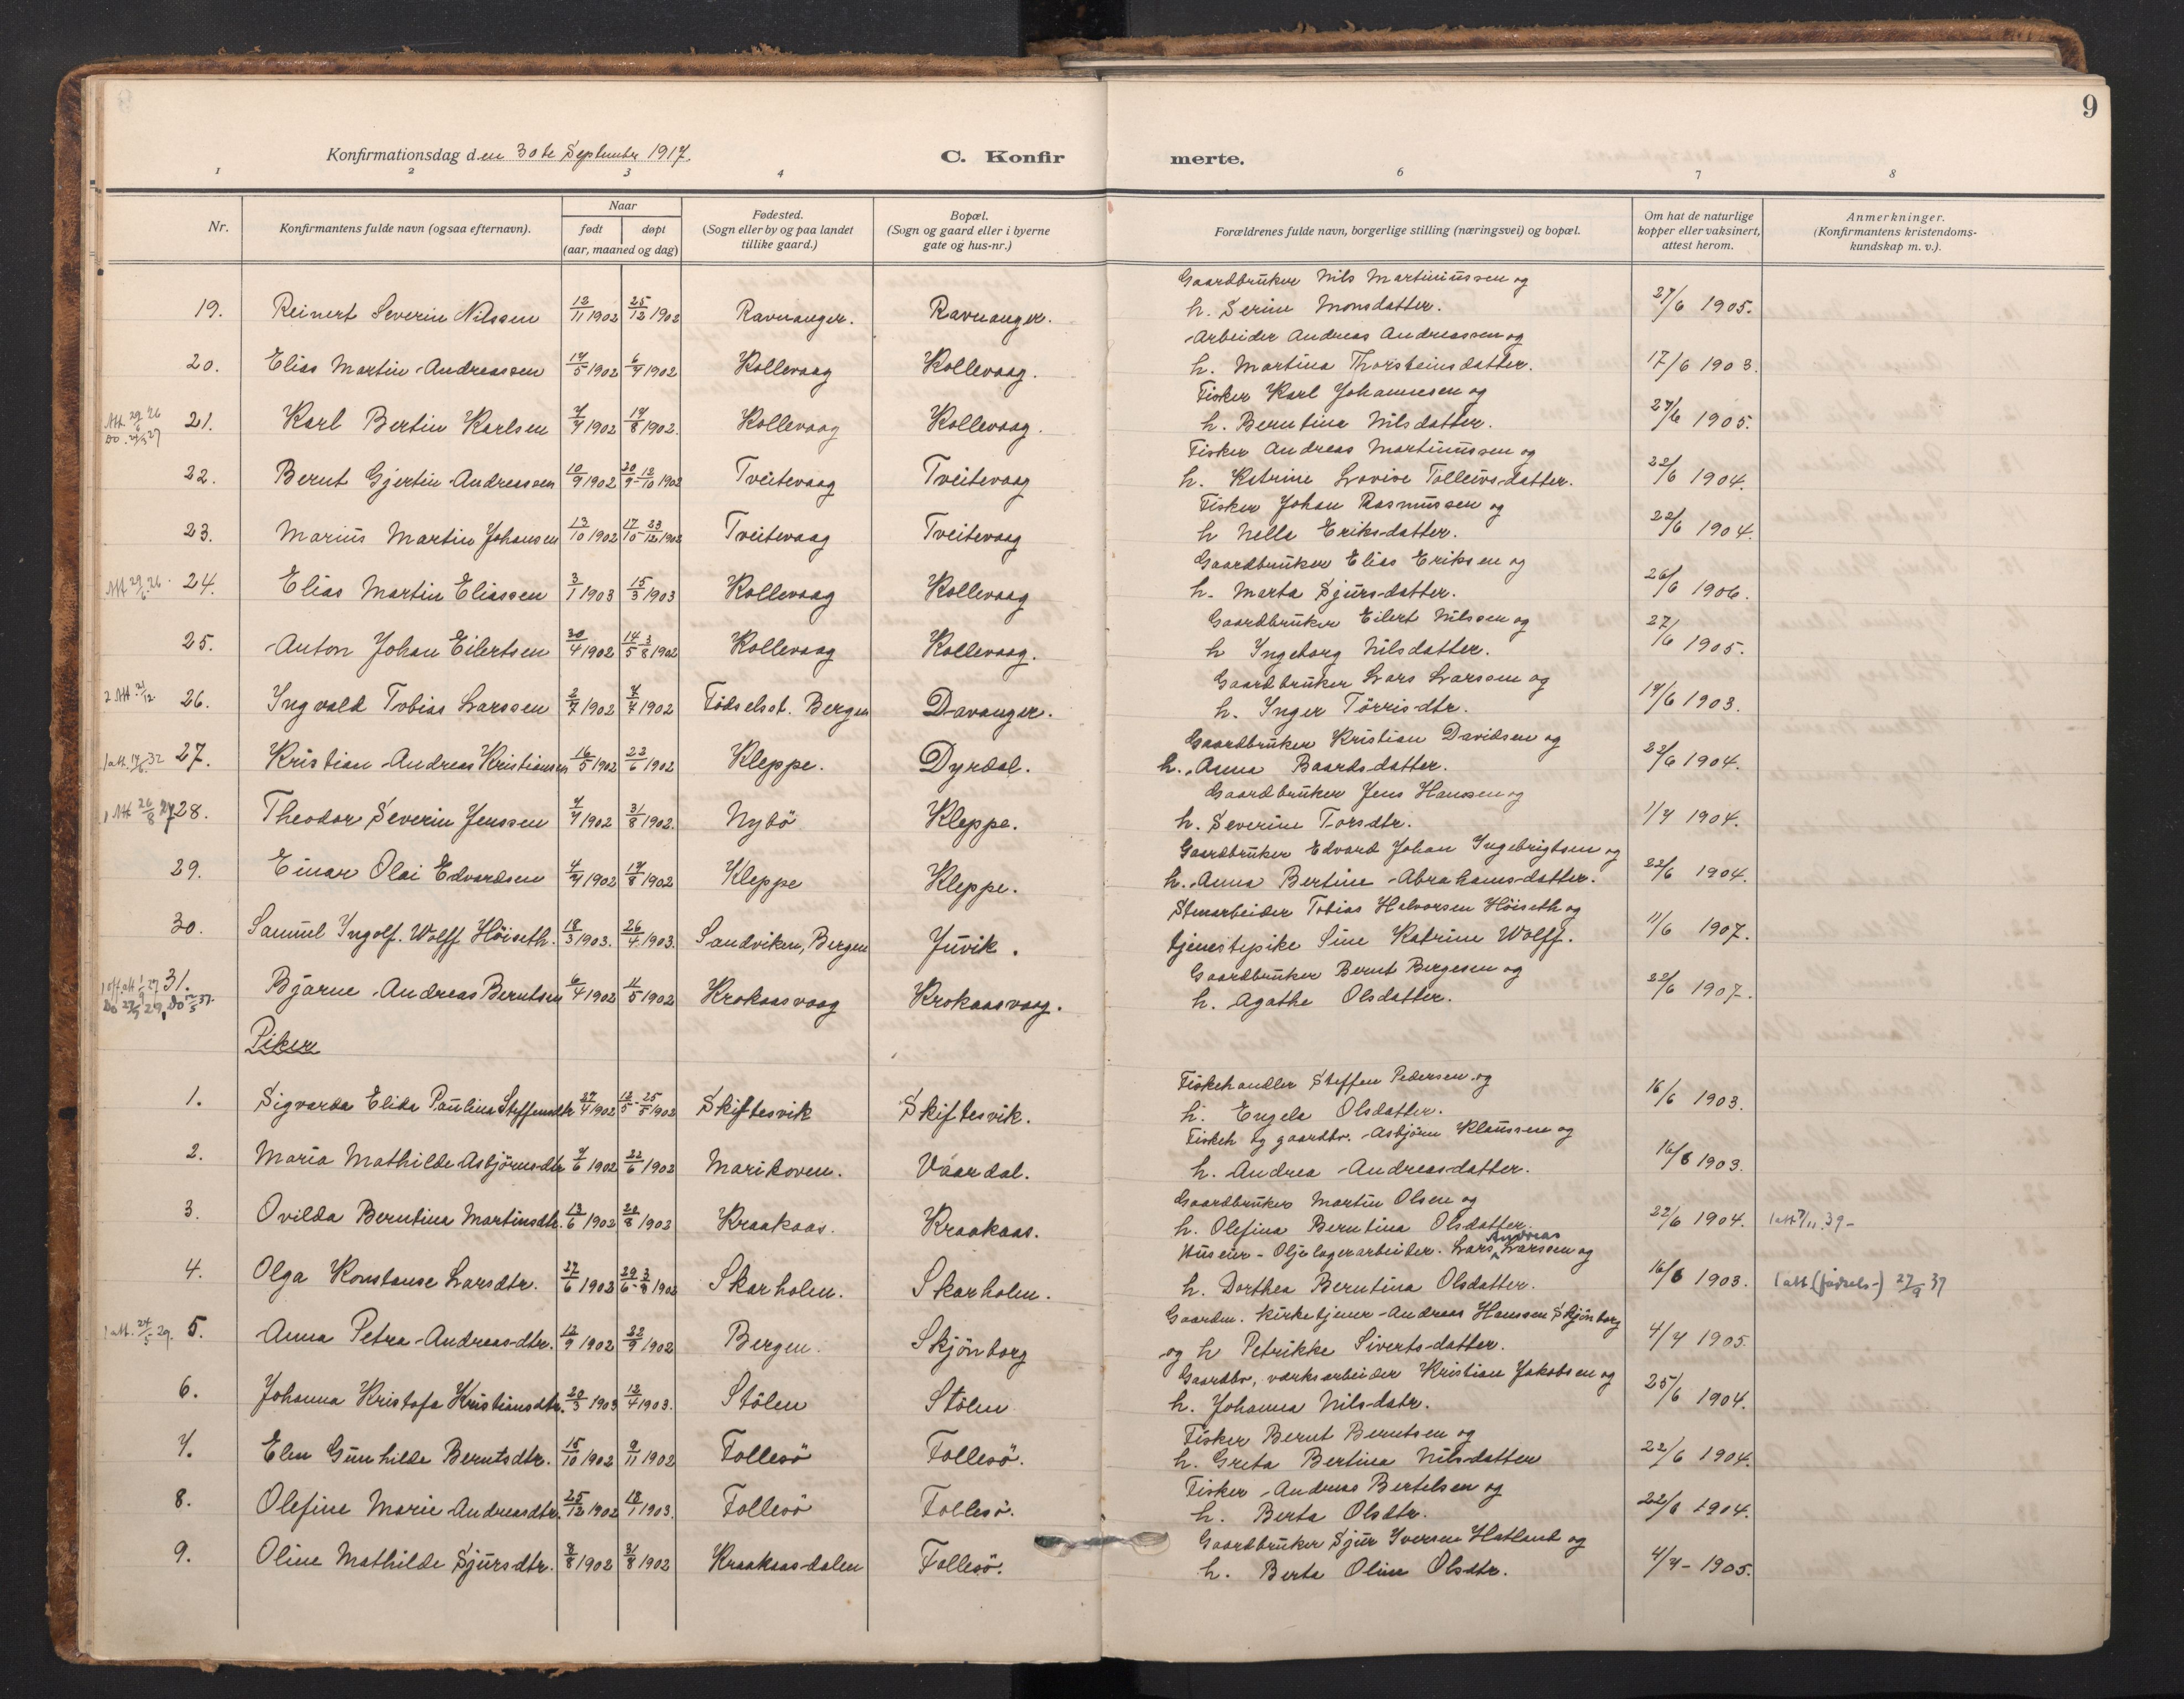 9
Konfirmationsdag den 30te September 1917.
C. Konfirmerte.
1 2 3 4 6 7 8
Nr.
Konfirmantens fulde navn (ogsaa efternavn).
Naar
født døpt
(aar, maaned og dag)
Fødested.
(Sogn eller by og paa landet
tillike gaard.)
Bopæl.
(Sogn og gaard eller i byerne
gate og hus-nr.)
Forældrenes fulde navn, borgerlige stilling (næringsvei) og bopæl.
Om hat de naturlige
kopper eller vaksinert,
attest herom.
Anmerkninger.
(Konfirmantens kristendoms-
kundskap m. v.).
Gaardbruker Nils Martinussen og
19. Reinert Severin Nilssen 12/11 1902 25/12 1902 Ravnanger. Ravnanger. h. Serine Monsdatter. 27/6 1905.
Arbeider Andreas Andreassen og
20. Elias Martin Andreassen 17/5 1902 6/7 1902 Kollevaag Kollevaag. h. Martina Thorsteinsdatter. 17/6 1903.
Fisker Karl Johannesen og
Att. 29/6 26 21. Karl Bertin Karlsen 7/7 1902 17/8 1902. Kollevaag Kollevaag. h. Berntina Nilsdatter. 27/6 1905.
Fisker Andreas Martinussen og
22. Bernt Gjertin Andreassen 10/9 1902 20/9 - 12/10 1902 Tveitevaag Tveitevaag h. Katrine Lovise Tolleivsdatter. 22/6 1904.
Fisker Johan Rasmussen og
23. Marius Martin Johansen 13/10 1902 17/10 - 23/12 1902 Tveitevaag Tveitevaag h Nella Eriksdatter. 22/6 1904.
Gaardbruker Elias Eriksen og
Att 29/6 26. 24. Elias Martin Eliassen 3/1 1903 15/3 1903 Kollevaag Kollevaag h. Marta Sjurs-datter. 26/6 1906.
Gaardbruker Eilert Nilssen og
25. Anton Johan Eilertsen 30/4 1902 14/5 3/8 1902 Kollevaag Kollevaag. h Ingeborg Nilsdatter. 27/6 1905.
Gaardbruker Lars Larssen og
2 Att. 21/12 26. Ingvald Tobias Larssen 2/7 1902 7/7 1902 Födselsst. Bergen Davanger. h. Inger Törris-dtr. 17/6 1903.
Gaardbruker Kristian Davidsen og
1 att. 17/6 32 27. Kristian Andreas Kristiansen 16/5 1902 23/6 1902 Kleppe. Dyrdal. h. Anna Baardsdatter. 22/6 1904.
Gaardbruker Jens Hansen og
1 Att 26/8 27 28. Theodor Severin Jenssen 7/7 1902 31/8 1902. Nybö Kleppe. h. Severine Torsdtr. 1/7 1904.
Gaardbruker Edvard Johan Ingebrigtsen og
29. Einar Olai Edvardsen 4/7 1902 17/8 1902 Kleppe Kleppe. h. Anna Bertine Abrahams-datter. 22/6 1904.
Stenarbeider Tobias Halvorsen Höiseth og
30. Samuel Ingolf. Wolff Höiseth. 18/3 1903. 26/4 1903. Sandviken, Bergen Juvik. tjenestepike Sine Katrine Wolff. 11/6 1907.
Gaardbruker Bernt Bergesen og
31. Bjarne Andreas Berntsen 6/4 1902 11/5 1902 Krokaasvaag Krokaasvaag. h. Agathe Olsdatter. 22/6 1907.
Piker
Fiskehandler Steffen Pedersen og
1. Sigvarda Elida Paulina Steffensdtr 27/4 1902 12/5 - 25/5 1902 Skiftesvik Skiftesvik. h. Engela Olsdatter. 16/6 1903.
Fiskeh og gaardbr. Asbjörn Klaussen og
2. Maria Mathilde Asbjörnsdtr 7/6 1902 22/6 1902 Marikoven. Vaardal. h. Andrea Andreasdatter. 16/6 1903.
Gaardbrukers Martin Olsen og
3. Ovilda Berntina Martinsdtr. 13/6 1902 20/8 1902 Kraakaas. Kraakaas. h. Olefina Berntina Olsdatter. 22/6 1904. 1 att 7/11. 39-
Huseier - Oljelagerarbeider. Lars Andreas Larssen og
4. Olga Konstanse Larsdtr. 27/6 1902 29/6 - 3/8 1902 Skarholen. Skarholm. h. Dorthea Berntina Olsdatter. 16/6 1903. 1 att (fødsels-) 27/9 37
Gaardm. Kirketjener Andreas Hanssen Skjönborg
1 att. 24/5 29. 5. Anna Petra Andreas-dtr. 12/9 1902 22/9 1902 Bergen. Skjönborg og h Petrikke Siverts-datter. 4/7 1905
Gaardbr, værksarbeider Kristian Jakobsen og
6. Johanna Kristofa Kristiansdtr. 20/3 1903 12/4 1903. Stölen Stölen h. Johanna Nils-datr. 25/6 1904.
Fisker Bernt Berntsen og
7. Elen Gunhilde Berntsdtr. 15/10 1902 9/11 1902 Follesö Follesö. h. Greta Bertina Nilsdatter 22/6 1904.
Fisker Andreas Bertelsen og
8. Olefine Marie Andreasdtr. 25/12 1902 18/1 1903. Follesö Follesö. h. Berta Olsdtr. 22/6 1904.
Gaardbruker Sjur Iversen Hatland og
9. Oline Mathilde Sjursdtr. 8/8 1902 31/8 1902 Kraakaas-dalen Follesö. h. Berta Oline Olsdtr. 4/7 - 1905.